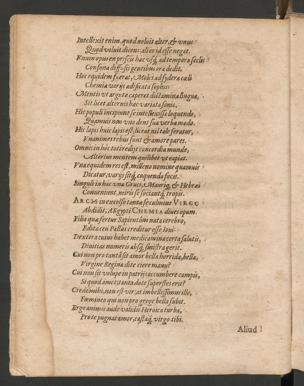 Intellexit enim, quod noluit alter, & unus
Quod voluit dicens, alter id esse negat.
Unum opus en priscis hac usq́; ad tempora seclis
Consona diffusis gentibus ora dedit.
Hoc equidem fueras, Moles ad sydera cæli
Chemia
Mentis ut arguta caperet dictamina lingua,
Sit licet alternis hæc variata sonis,
Hic populi incipiunt se intellexisse loquendo,
Quamvis non uno dent sua verba modo.
Hic lapis huic lapis est, liceat nil tale feratur,
Unanimes tribus sunt & amore pares.
Omnes in hoc totiredijt concordia mundo,
Alterius mentem quilibet ut capiat.
Una equidem res est, milleno nomine quamvis
Dicatur, varijs sitq́, coquenda focis.
Singuli in hoc una Graeci, Mauriq́, & Hebræi
Conveniunt, miris se sociantq́; tropis.
ARCHI in excelso tanta seculmine VIRGO
Abdidit, Ægypti CHEMIA dives opum.
Filia quæ fertur Sapientum nata cerebro,
Edita ceu Pallas creditur esse Iovis.
Dextera cuius habet medicamina certa salutis,
Divitias numeris absq́, sinistra gerit.
Cui non pro tanta sit amor bella horrida, bella,
Virgine Regina dite ciere manu?
Cui non sit volupe in patrijs occumbere campis,
Si quid amict tanta dote superstes erit?
Credemihi, non est vir, at imbellissimus ille,
Fœmineo qui non pro grege bella subit.
Ergo animis aude validis Heroica turba,
Prote pugnat amor, castaq́; virgo tibi.
Aliud